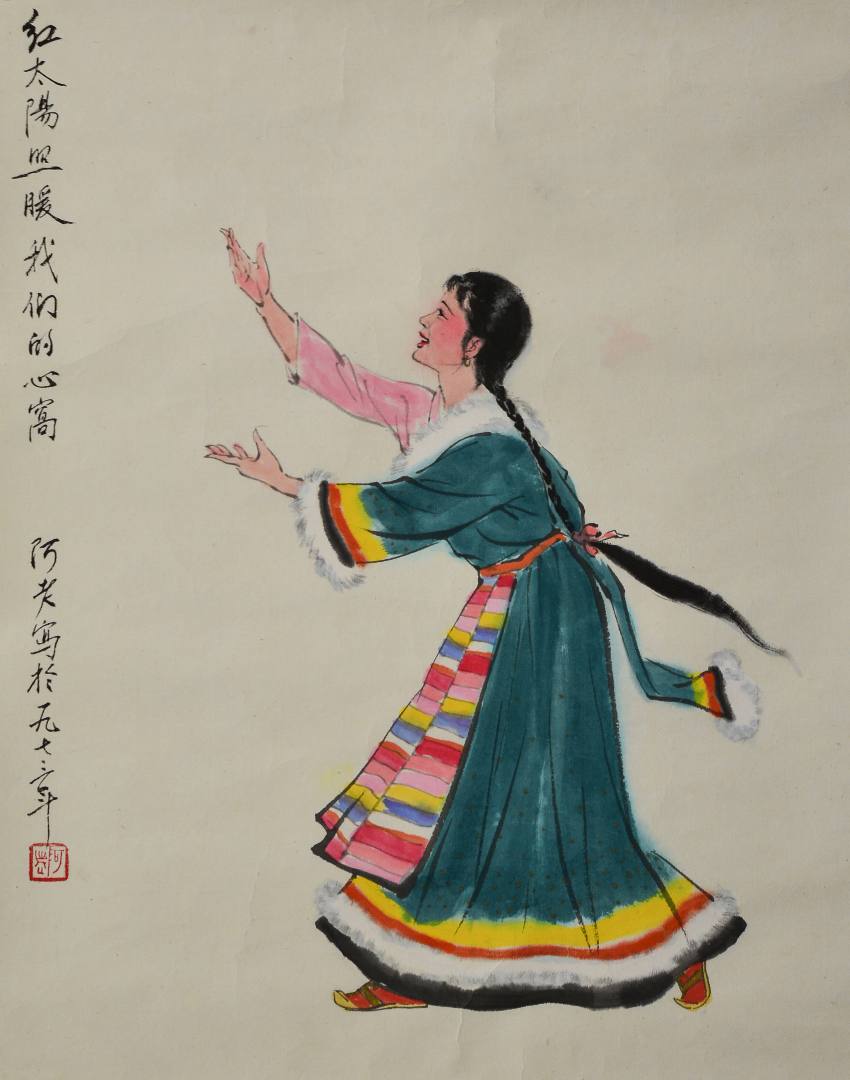 红太陽照暖我们的心窝
阿老寫於一九七三年
阿老